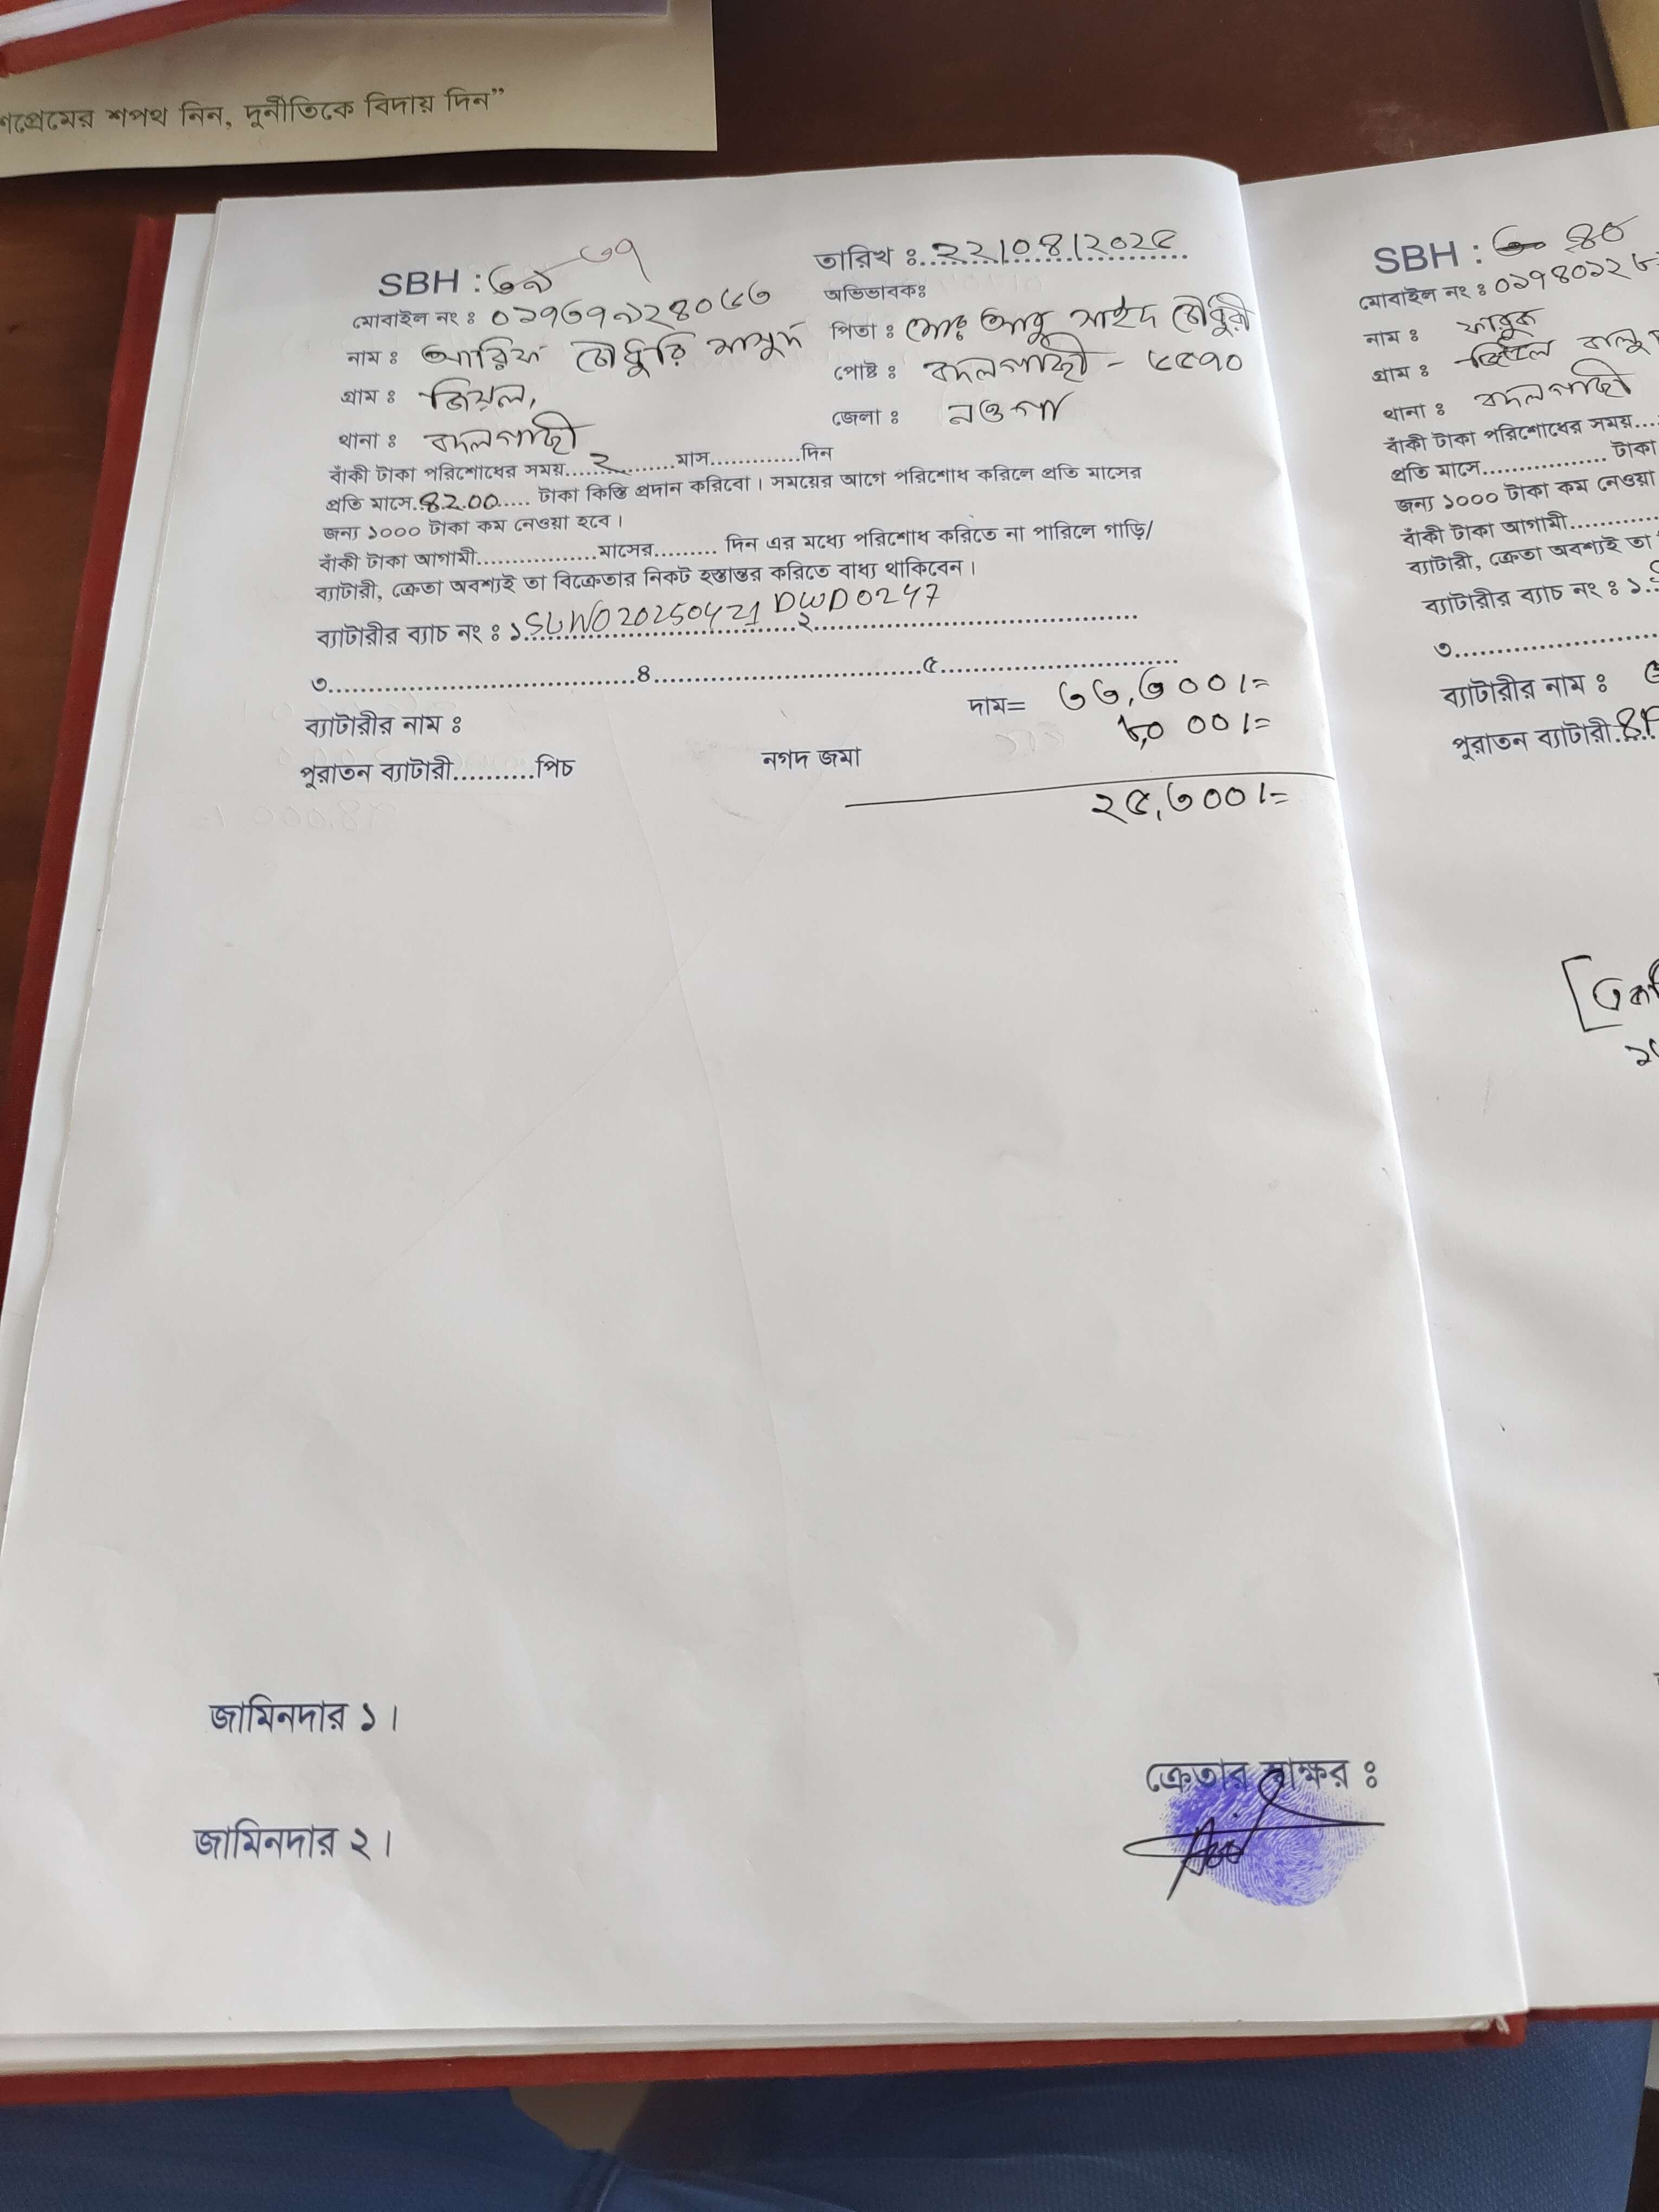 প্রেমের শপথ নিন, দুর্নীতিকে বিদায় দিন”
SBH : ৩৯ ৩৭
তারিখ ঃ ২২/০৪/২০২৫
মোবাইল নং ঃ
অভিভাবকঃ
নাম ঃ আরিফ চৌধুরি মাসুদ
পিতা ঃ মোঃ আবু সাইদ চৌধুরী
গ্রাম ঃ জিয়ল,
পোষ্ট ঃ বদলগাছী - ৬৫৭০
থানা ঃ বদলগাছী
জেলা ঃ নওগাঁ
বাঁকী টাকা পরিশোধের সময়......২.........মাস.............দিন
প্রতি মাসে..৪২০০..... টাকা কিস্তি প্রদান করিবো। সময়ের আগে পরিশোধ করিলে প্রতি মাসের
জন্য ১০০০ টাকা কম নেওয়া হবে।
বাঁকী টাকা আগামী.................মাসের......... দিন এর মধ্যে পরিশোধ করিতে না পারিলে গাড়ি/
ব্যাটারী, ক্রেতা অবশ্যই তা বিক্রেতার নিকট হস্তান্তর করিতে বাধ্য থাকিবেন।
ব্যাটারীর ব্যাচ নং ঃ ১. 20250421DWD0247 ২..........
৩..........৪..........৫..........
ব্যাটারীর নাম ঃ
দাম= ৩৩,৩০০/=
পুরাতন ব্যাটারী..........পিচ
নগদ জমা ৮০০০/=
২৫,৩০০/=
জামিনদার ১।
জামিনদার ২।
ক্রেতার স্বাক্ষর ঃ
SBH : ৪০
মোবাইল নং ঃ
নাম ঃ ফারুক
গ্রাম ঃ
থানা ঃ বদলগাছী
বাঁকী টাকা পরিশোধের সময়...
প্রতি মাসে................. টাকা
জন্য ১০০০ টাকা কম নেওয়া
বাঁকী টাকা আগামী............
ব্যাটারী, ক্রেতা অবশ্যই তা
ব্যাটারীর ব্যাচ নং ঃ ১.
৩..........
ব্যাটারীর নাম ঃ
পুরাতন ব্যাটারী